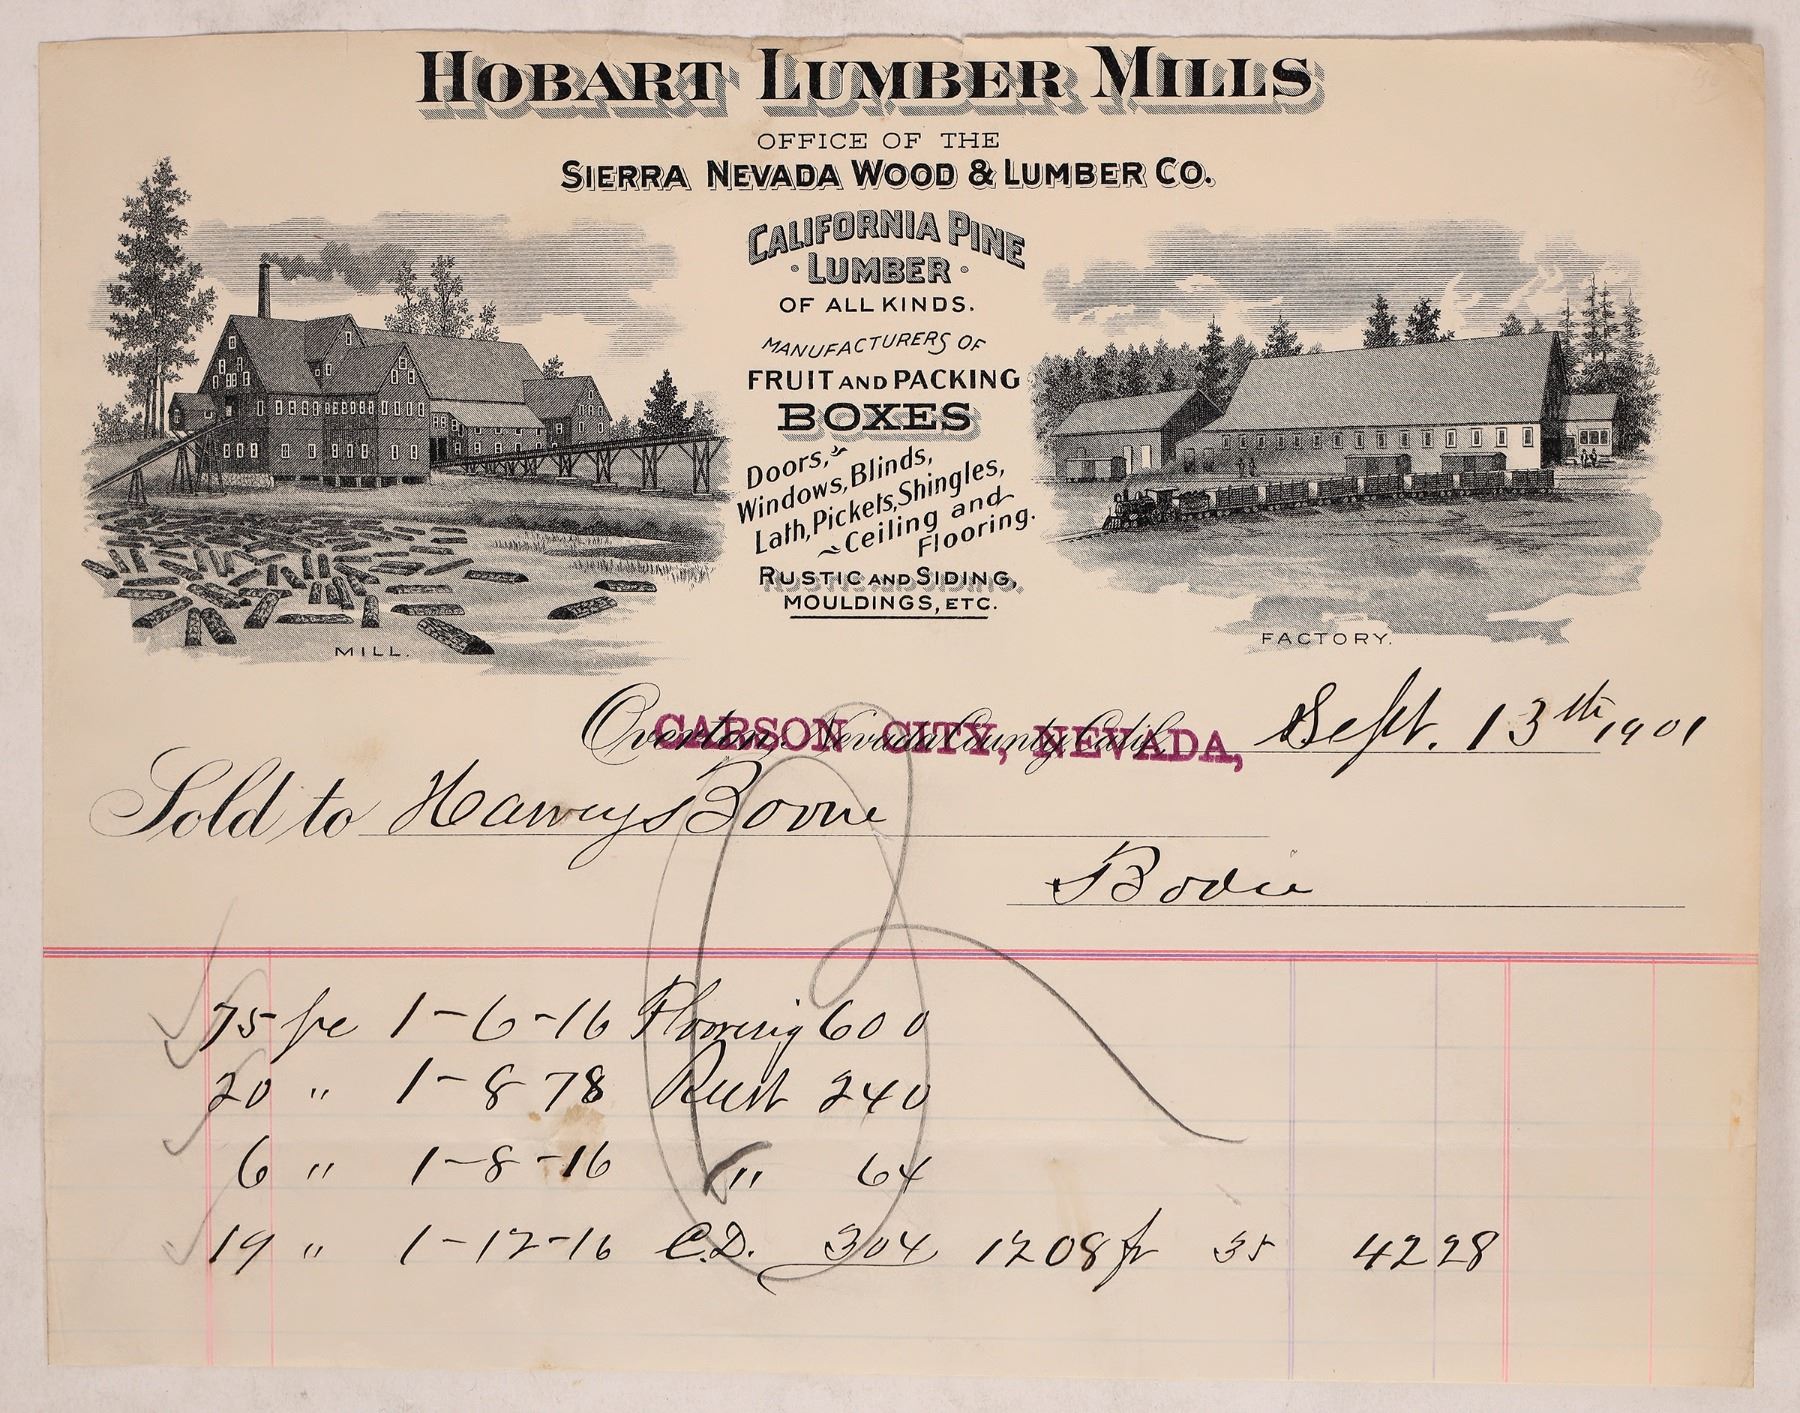 HOBART LUMBER MILLS
OFFICE OF THE
SIERRA NEVADA WOOD & LUMBER CO.
CALIFORNIA PINE
LUMBER
OF ALL KINDS.
MANUFACTURERS OF
FRUIT AND PACKING
BOXES
Doors,
Windows, Blinds,
Lath, Pickets, Shingles,
Ceiling and
Flooring.
RUSTIC AND SIDING,
MOULDINGS, ETC.
MILL.
FACTORY.
Overton, Nevada County, Calif.
CARSON CITY, NEVADA, Sept. 13th 1901
Sold to Harvey Boone
Bodie
75 pc 1-6-16 Flooring 600
20 " 1-8 78 Rust 240
6 " 1-8-16 " 64
19 " 1-12-16 C.D. 304 1208 ft 35 42 28